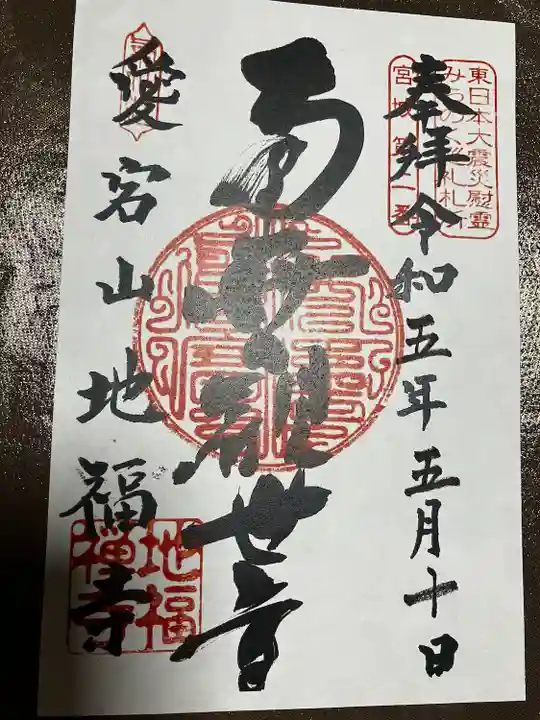 東日本大震災慰霊
みちのく巡礼札所
奉拝 令和五年五月十日
南無観世音
愛宕山地福寺
地福